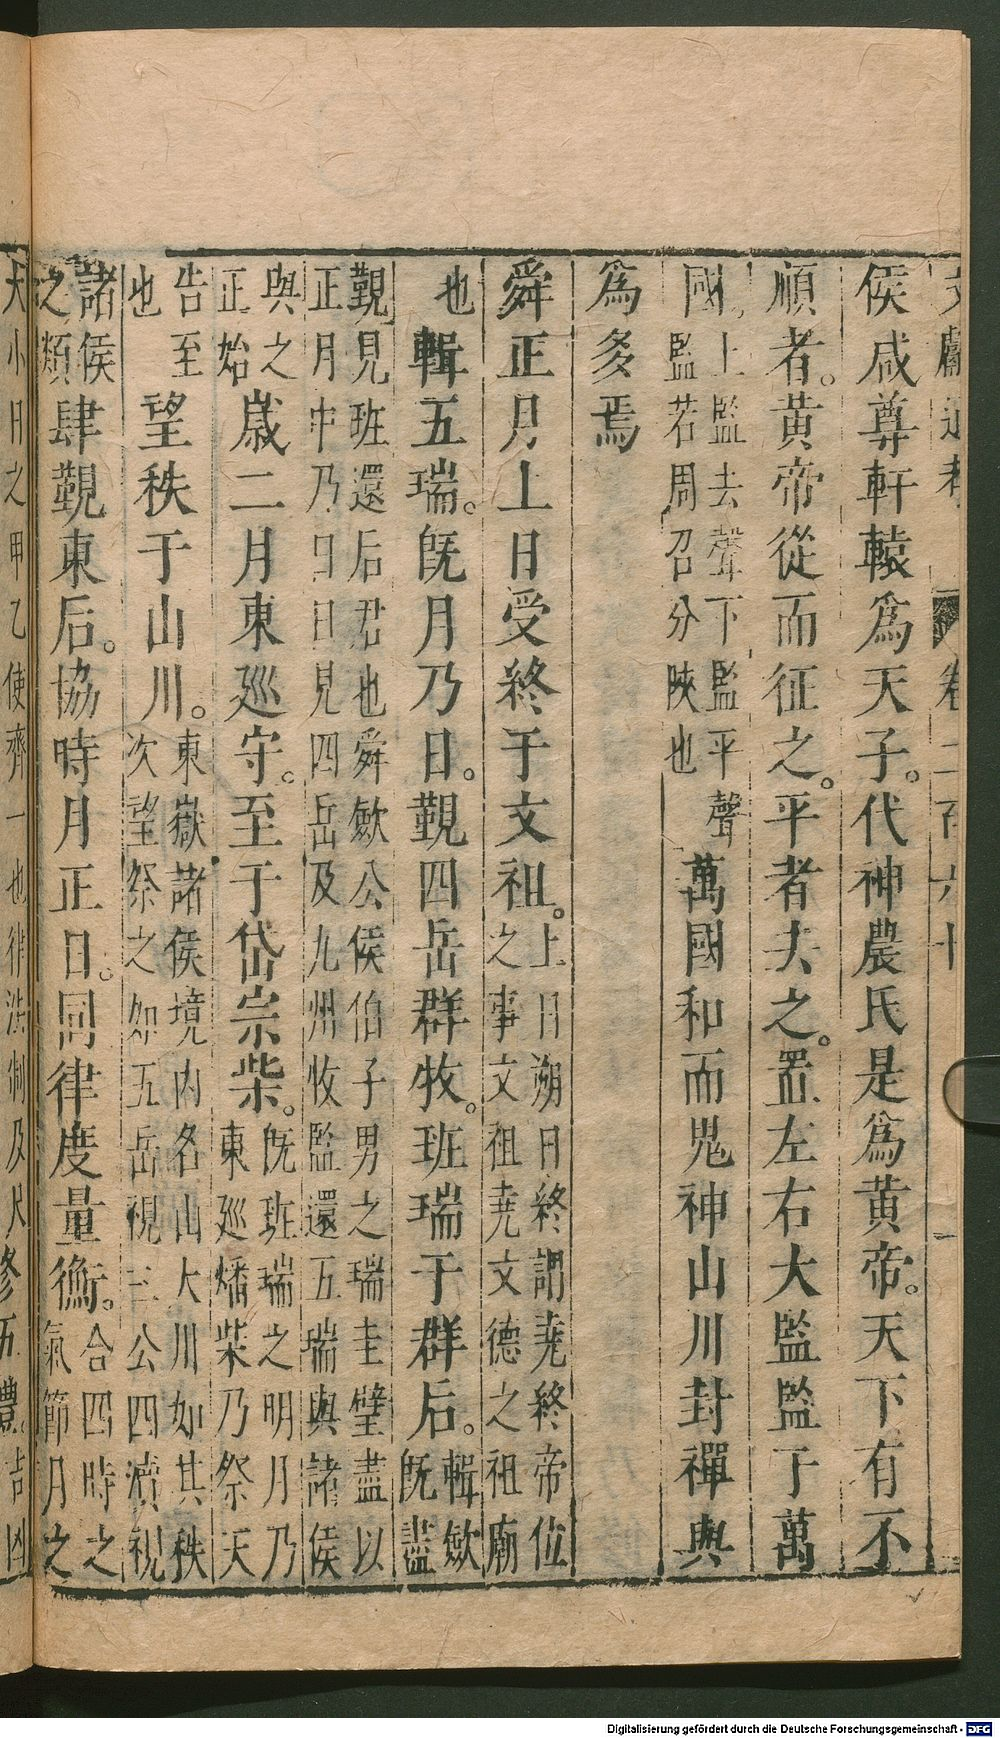 文獻通考 卷二百六十 一
侯咸尊軒轅爲天子。代神農氏是爲黄帝。天下有不
順者。黄帝從而征之。平者去之。置左右大監監于萬
國。上監去聲下監平聲監若周召分陜也萬國和而鬼神山川封禪與
爲多焉
舜正月上日受終于文祖。上日朔日終謂尭終帝位之事文祖尭文德之祖廟
也輯五瑞。旣月乃日。覲四岳群牧。班瑞于群后。輯斂旣盡
覲見班還后君也舜斂公侯伯子男之瑞圭璧盡以正月中乃日日見四岳及九州牧監還五瑞與諸侯
與之正始歲二月東廵守。至于岱宗柴。旣班瑞之明月乃東廵燔柴乃祭天
告至也望秩于山川。東嶽諸侯境内名山大川如其秩次望祭之如五岳視三公四瀆視
諸侯之類肆覲東后。協時月正日。同律度量衡。合四時之氣節月之
大小日之甲乙使齊一也律法制及尺修五禮。吉凶
Digitalisierung gefördert durch die Deutsche Forschungsgemeinschaft - DFG